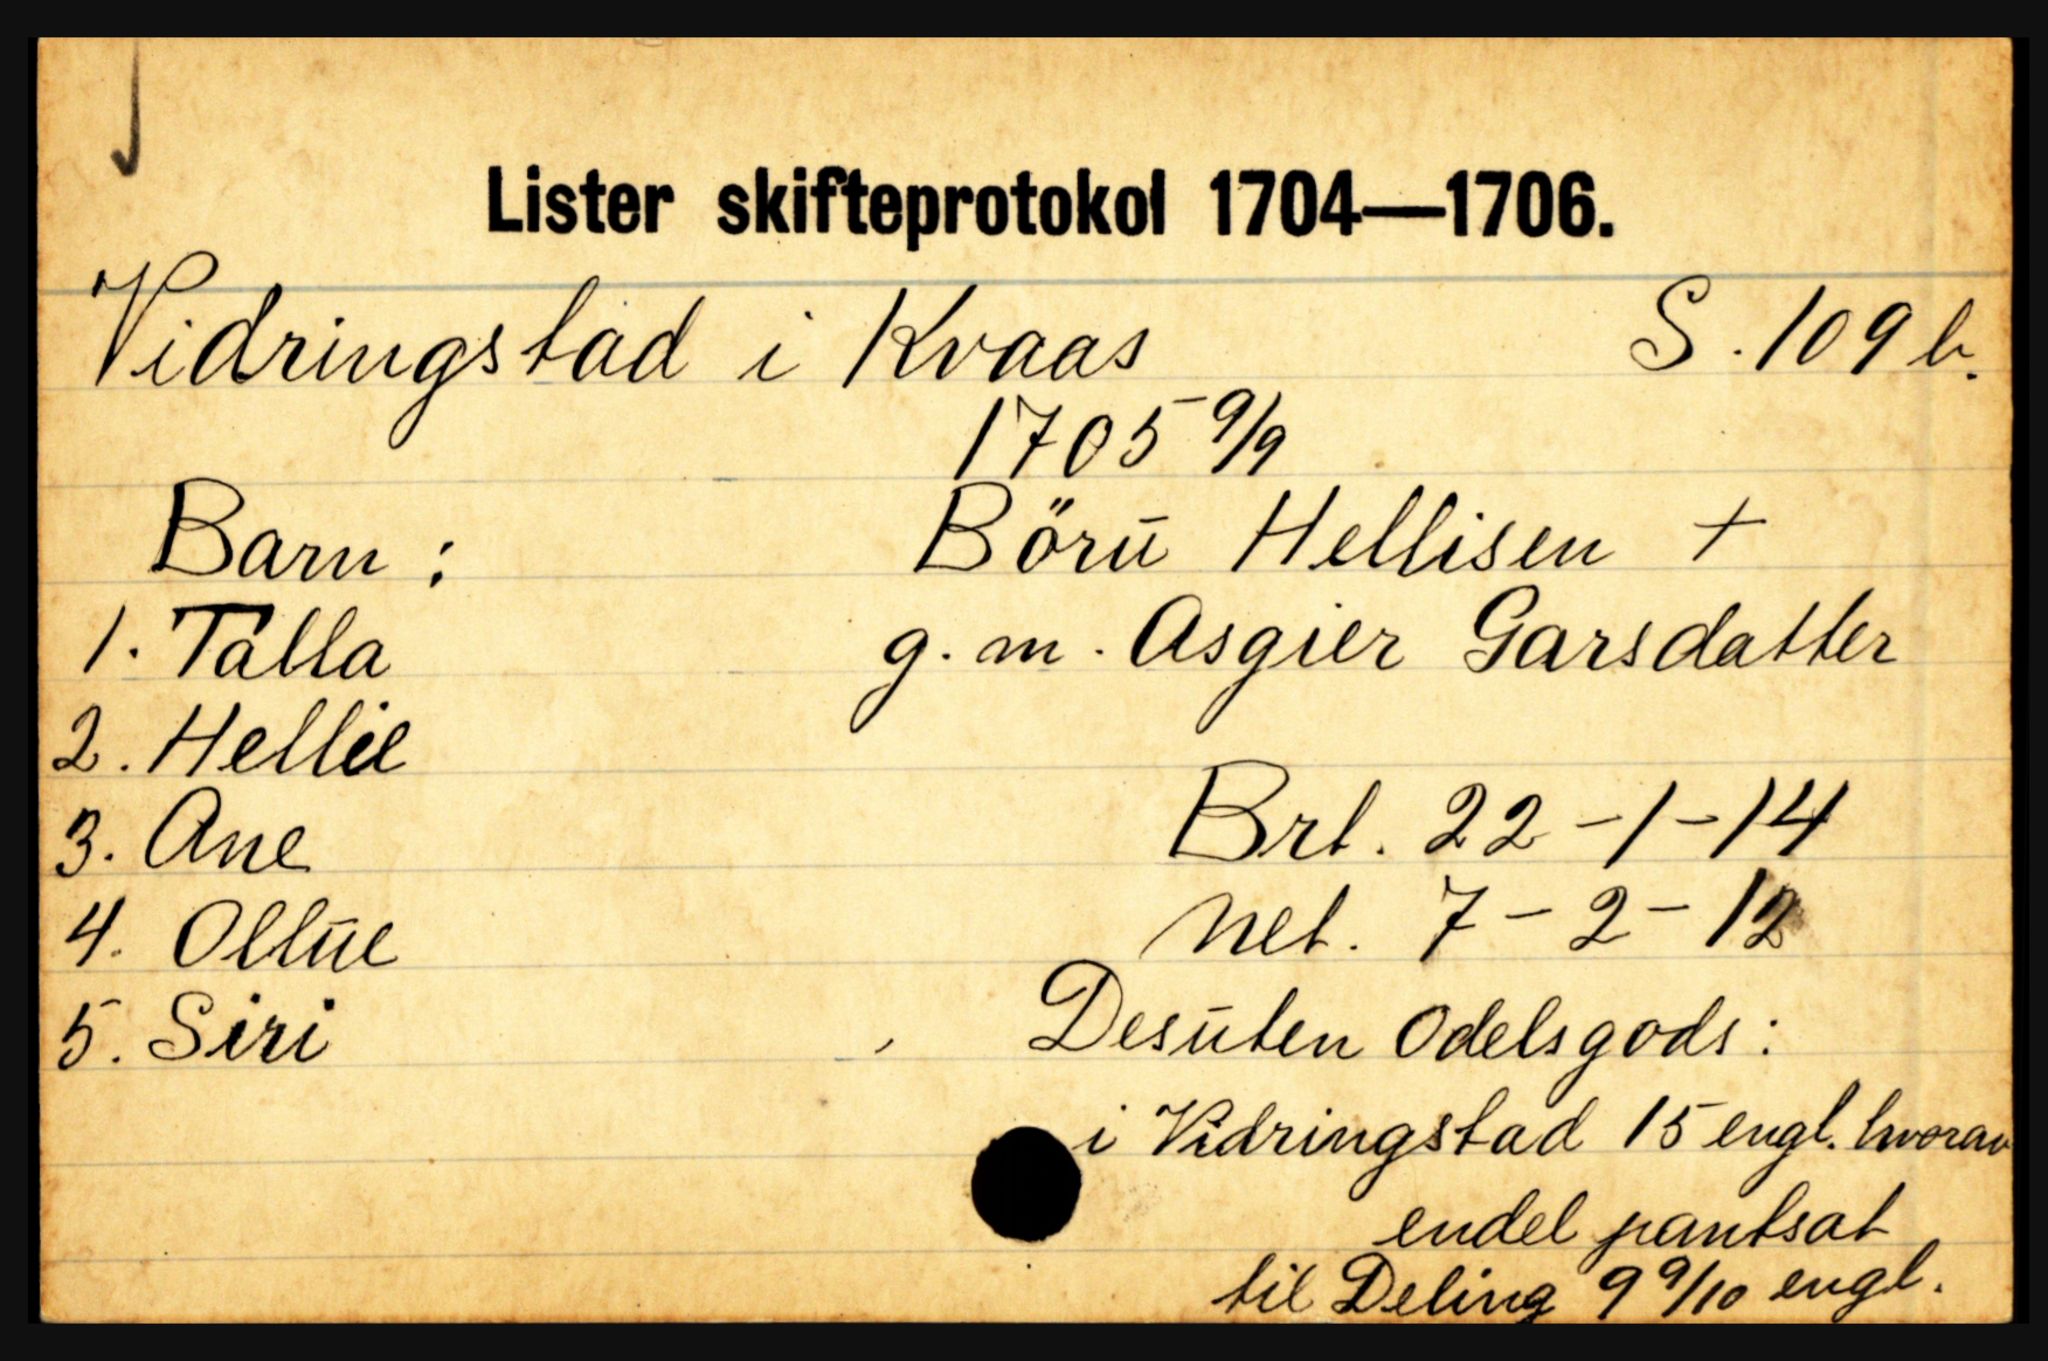 Lister skifteprotokol 1704—1706.
Vidringstad i Kvaas S. 109 b.
1705 9/9
Barn : Börū Hellisen +
1. Talla g. m. Asgier Garsdatter
2. Hellie
3. Ane Brt. 22 - 1 - 14
4. Oltūe Net. 7 - 2 - 12
5. Siri Desūten Odelsgods :
i Vidringstad 15 engl. hvorav
endel pantsat
til Deling 9 9/10 engl.